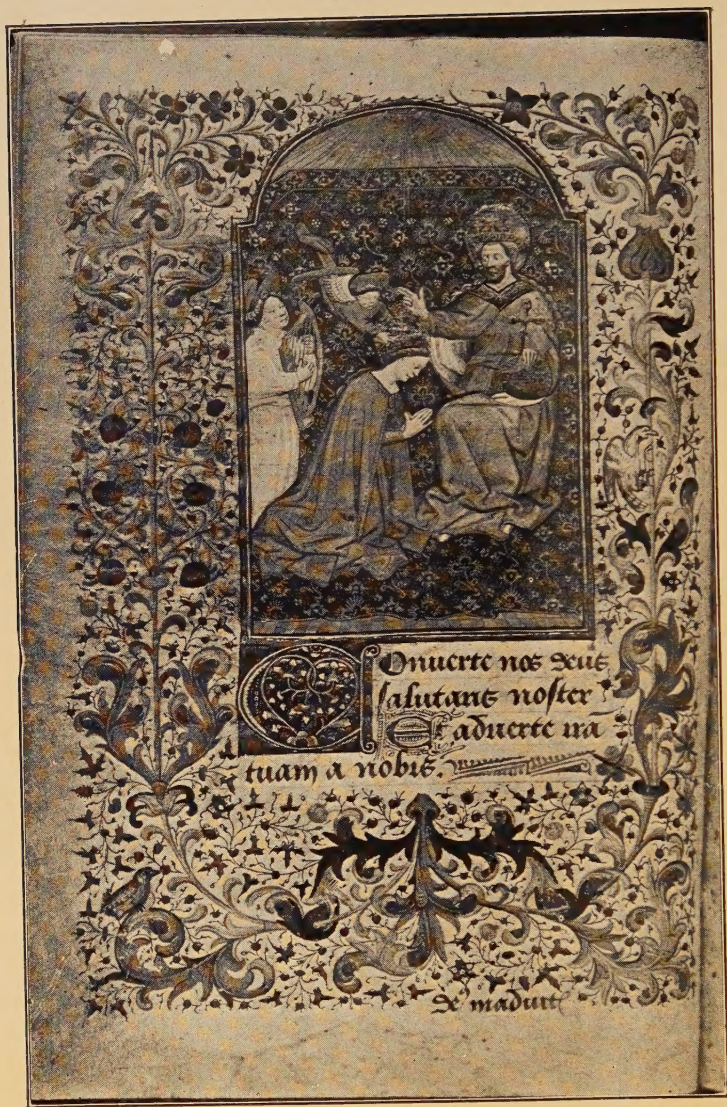 Conuerte nos deus
salutaris noster
Et aduerte ira
tuam a nobis.
Ds in adiut